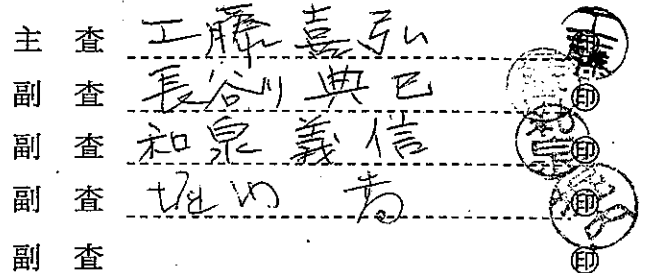 主査 工藤喜弘 ㊞
副査 長谷川典巳 ㊞
副査 和泉義信 ㊞
副査 ㊞
副査 ㊞